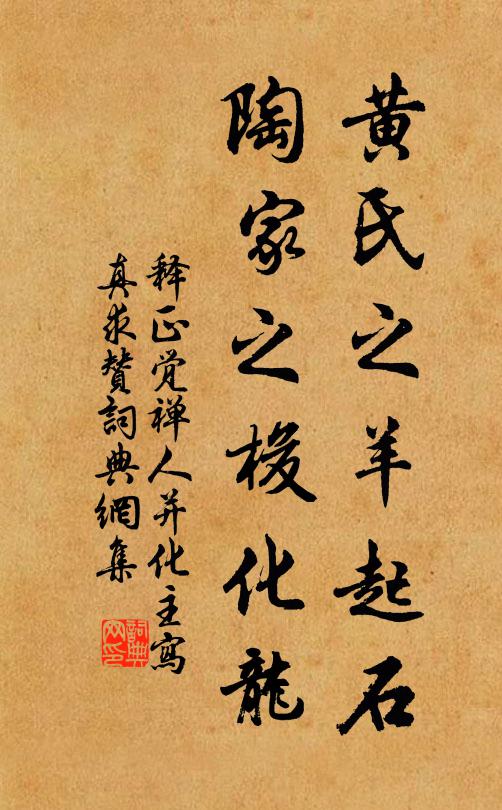 黄氏之羊起石
陶家之梭化龍
释正觉禅人并化主寫
真求赞詞典網集
詞典
网印